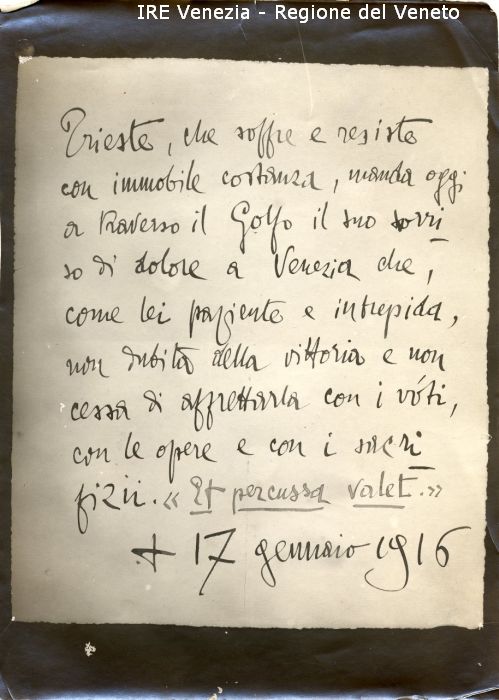 IRE Venezia - Regione del Veneto
Trieste, che soffre e resiste
con immobile costanza, manda oggi
a traverso il Golfo il suo sorri
so di dolore a Venezia che,
come lei paziente e intrepida,
non dubita della vittoria e non
cessa di affrettarla con i vóti,
con le opere e con i sacri
fizii. «Et percussa valet.»
+ 17 gennaio 1916